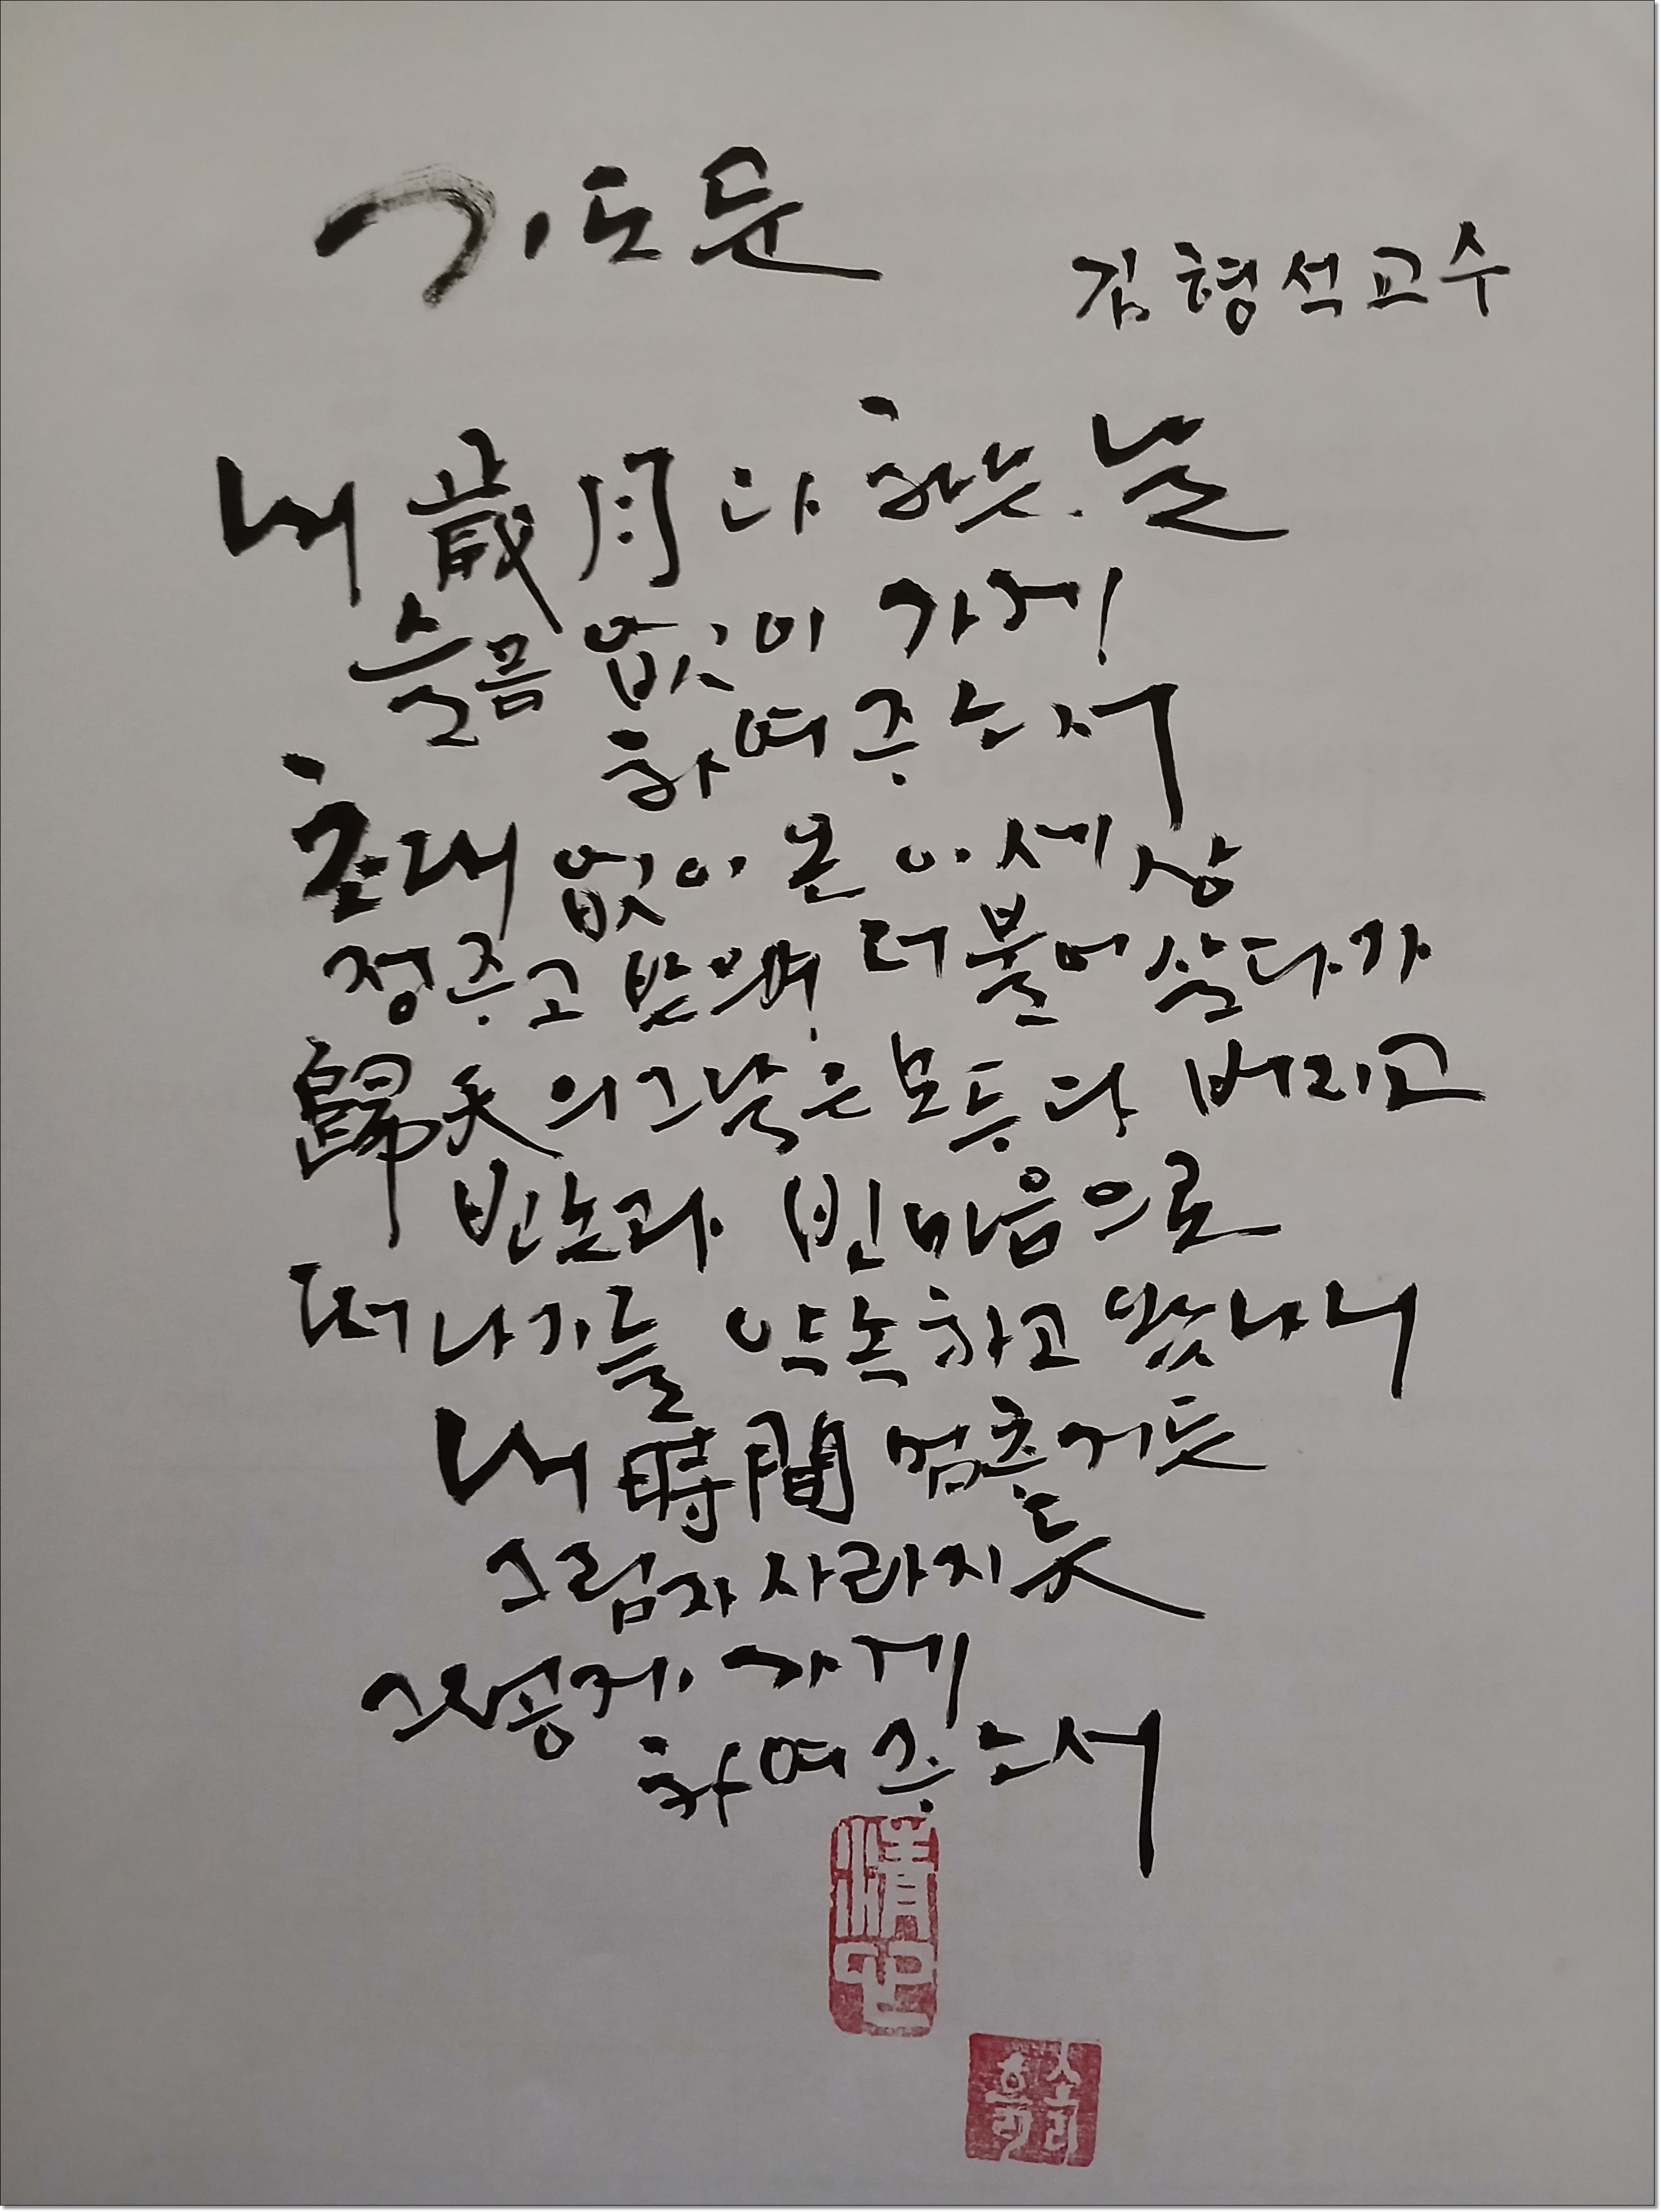 기도문
김형석교수
내 歲月 다 하는 날
슬픔 없이 가게
하여 주소서
초대 없이 온 이 세상
정 주고 받으며 더불어 살다가
歸天의 그날은 모두 다 버리고
빈손과 빈마음으로
떠나기를 약속하고 왔나니
내 時間 멈추거든
그림자 사라지듯
그렇게 가게
하여 주소서